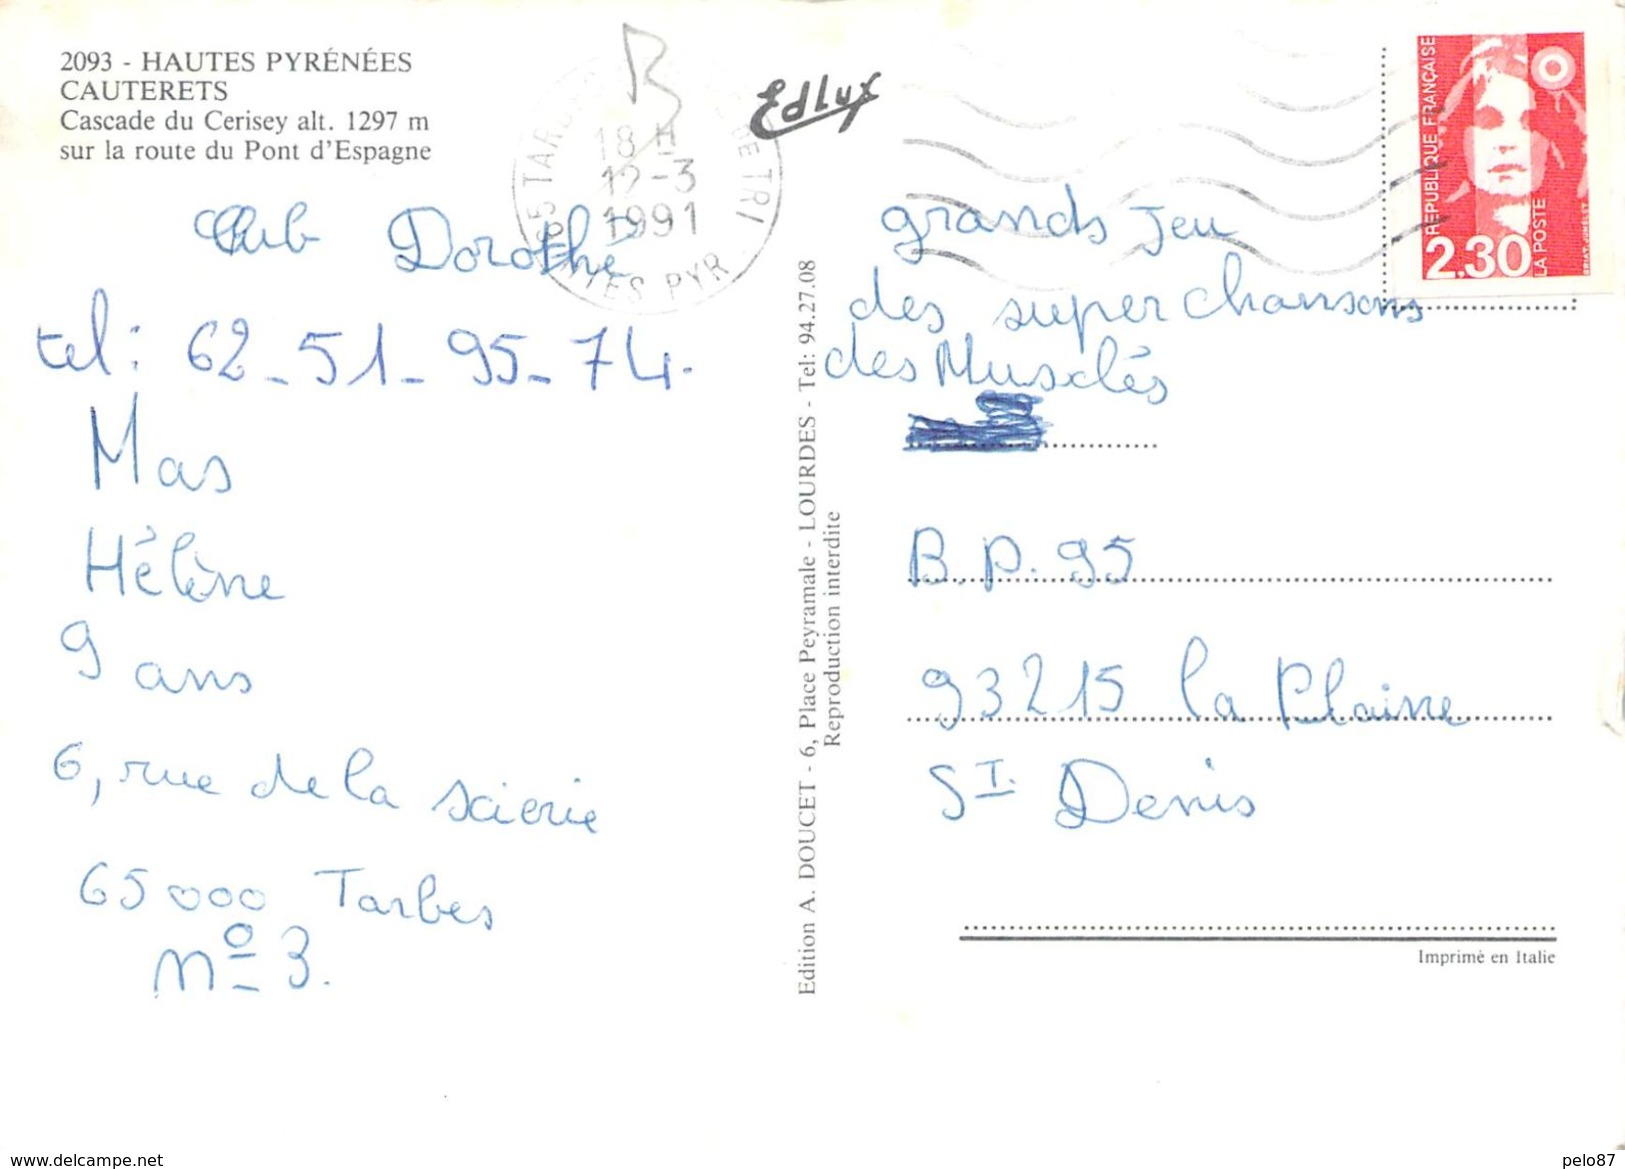 2093 - HAUTES PYRÉNÉES
CAUTERETS
Cascade du Cerisey alt. 1297 m
sur la route du Pont d'Espagne
Club Dorothé
tel: 62-51-95-74.
Mas
Hélène
9 ans
6, rue de la scierie
65000 Tarbes
nº 3.
18 H
12-3
1991
Edlux
Edition A. DOUCET - 6, Place Peyramale - LOURDES - Tel: 94.27.08
Reproduction interdite
REPUBLIQUE FRANÇAISE
2.30
LA POSTE
grands jeu
des super chansons
des Musclés
B.P. 95
93215 la Plaine
ST. Denis
Imprimé en Italie
www.delcampe.net
pelo87